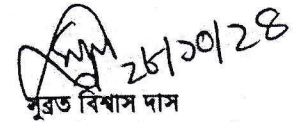 ২৮/১০/২৪
সুব্রত বিশ্বাস দাস